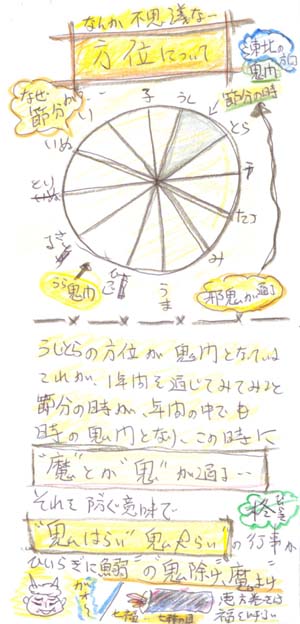 なんか不思議な…
方位について
東北の方向
鬼門
なぜ
節分が…
節分の時
子
うし
とら
う
たつ
み
うま
ひつじ
さる
とり
いぬ
い
うら鬼門
邪鬼が通る
うしとらの方位が鬼門となっている
これが、1年間を通じてみてみると
節分の時が、年間の中でも
時の鬼門となり、この時に
"魔"とか"鬼"が通る…
それを防ぐ意味で
柊
"鬼はらい""鬼やらい"の行事が
ひいらぎに鰯"の鬼除け、魔よけ
が
七福…七種の具
恵方巻きは
福を呼ぶ